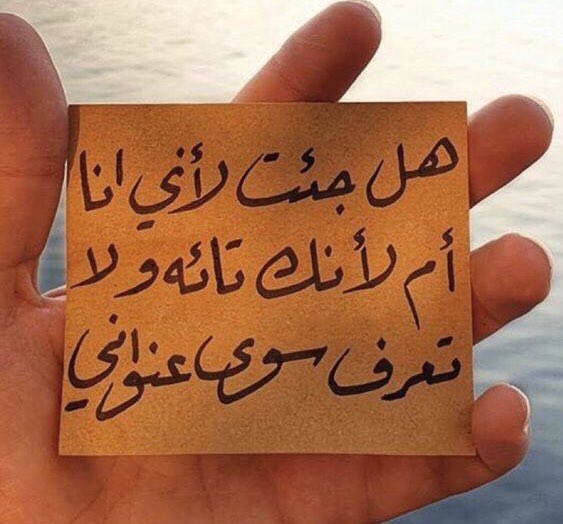 هل جئت لأني انا
أم لأنك تائه ولا
تعرف سوى عنواني